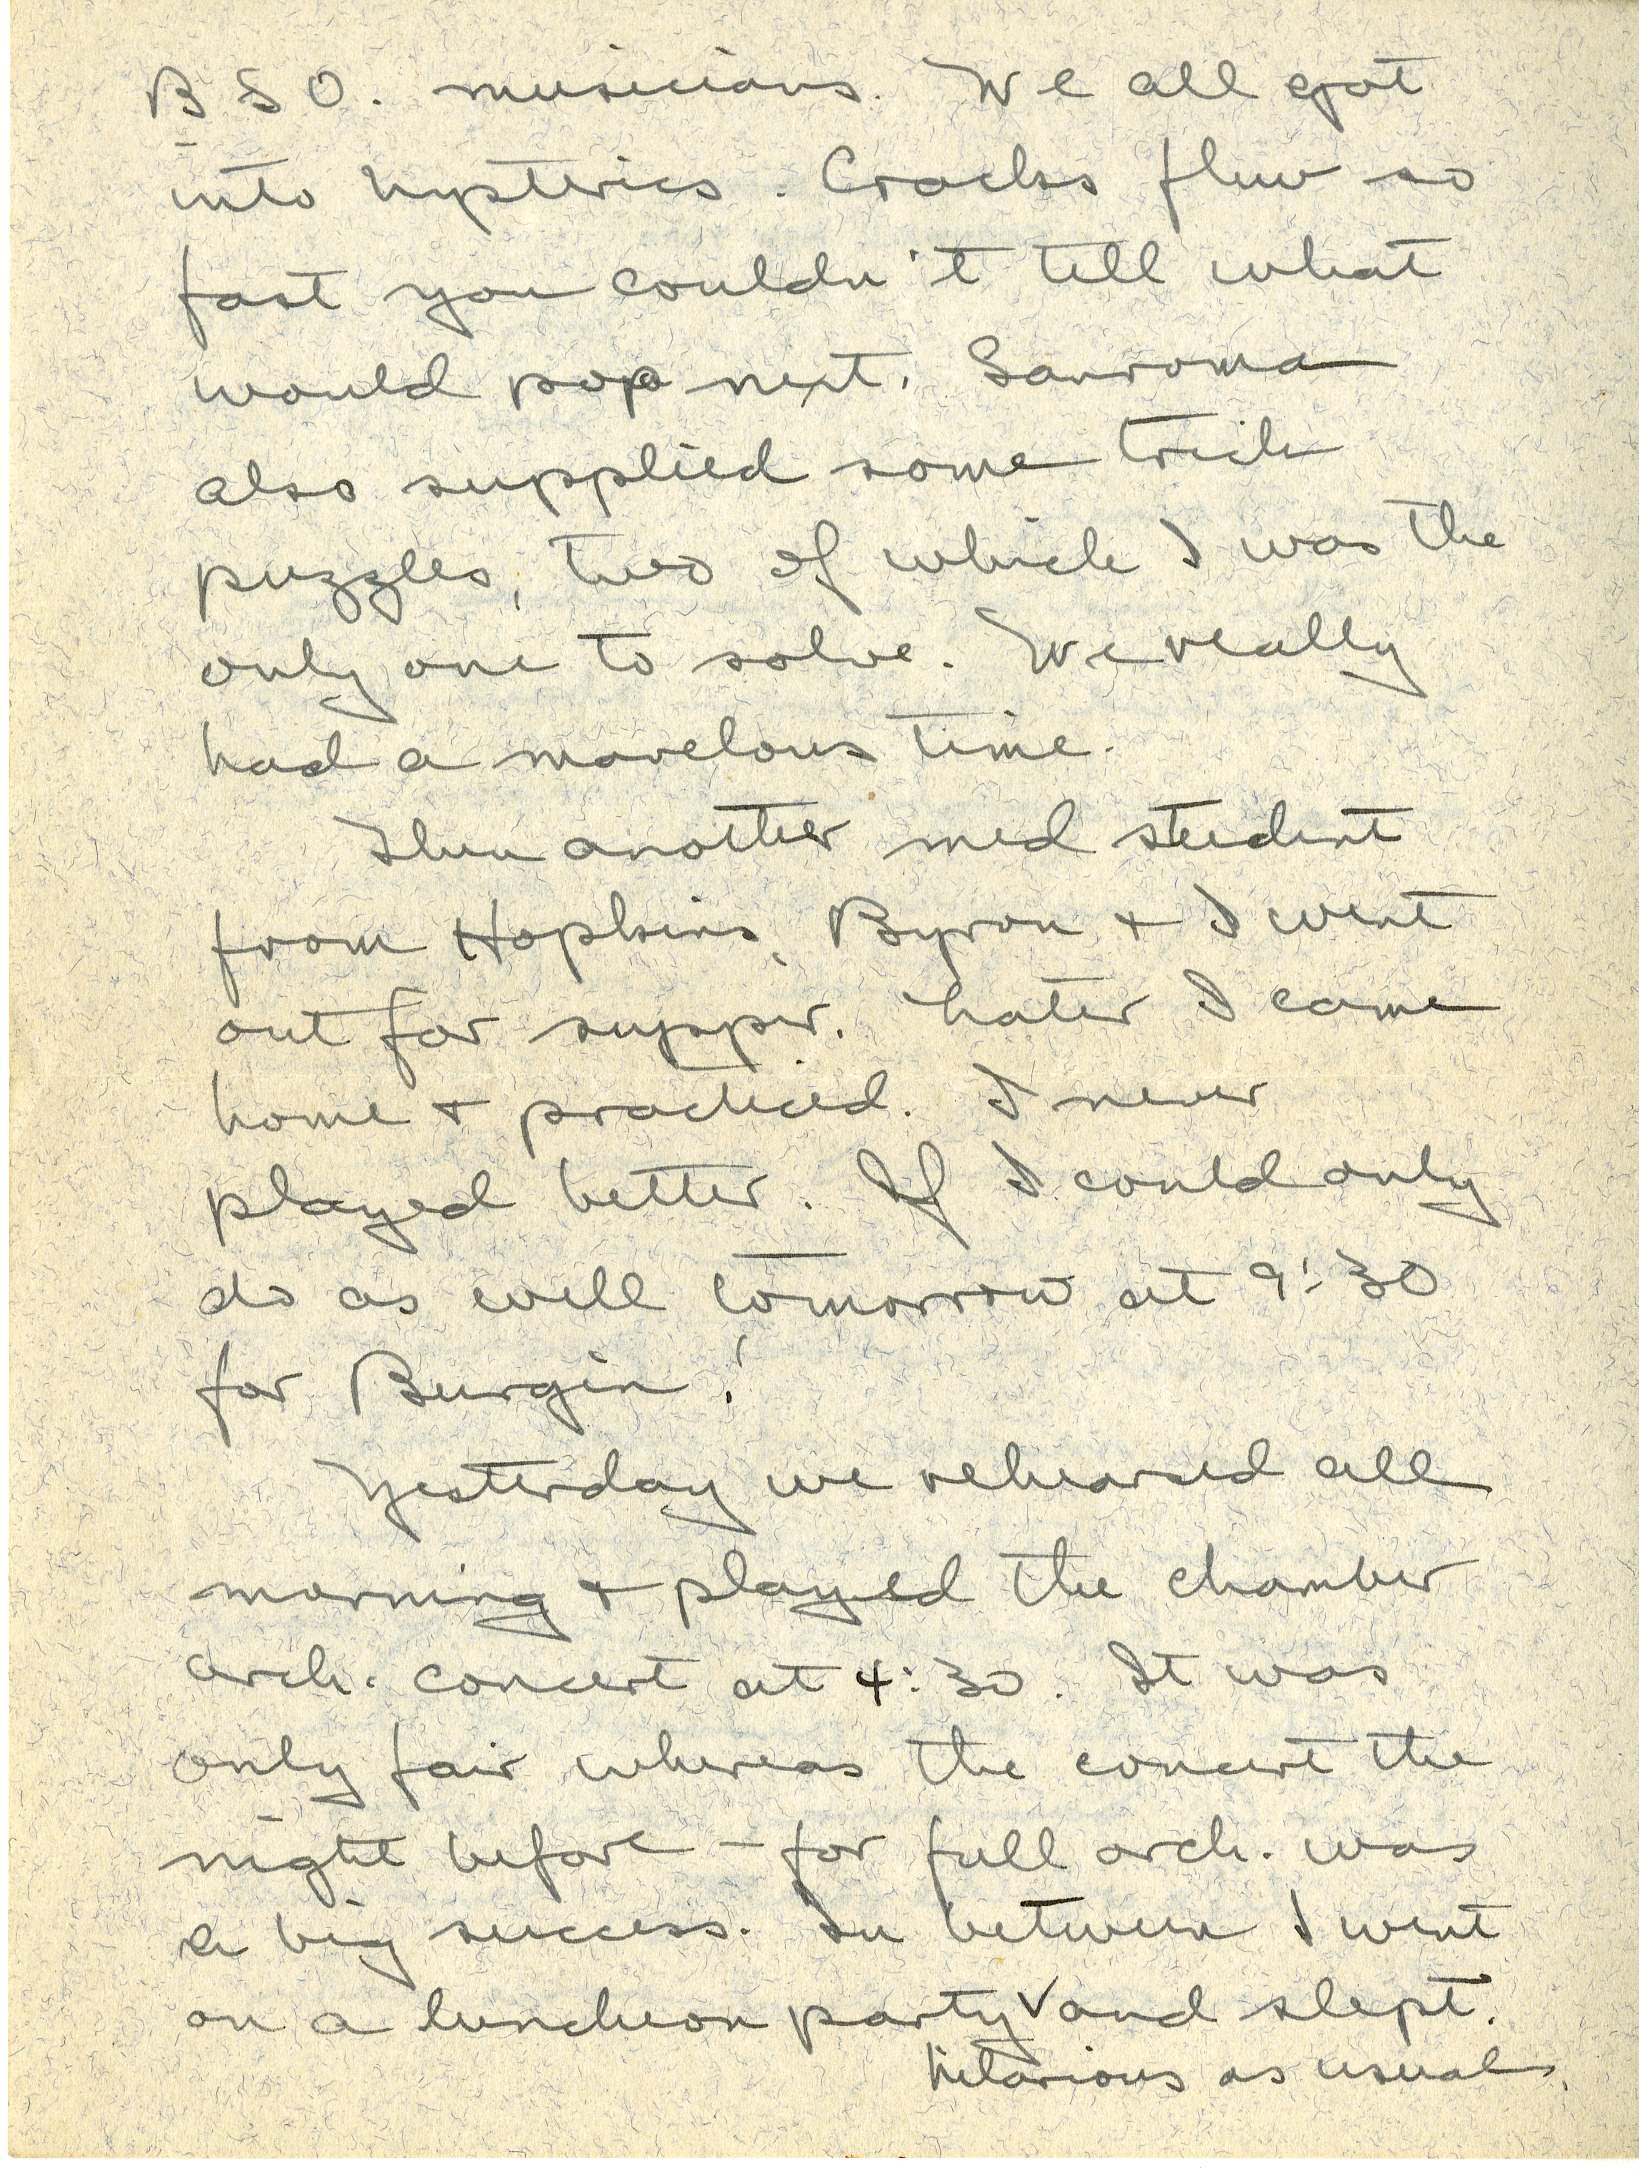 BSO. musicians. We all got
into hysterics. Cracks flew so
fast you couldn't tell what
would pop next. Sanroma
also supplied some trick
puzzles, two of which I was the
only one to solve. We really
had a marelous time.
Then another med student
from Hopkins, Byron + I went
out for supper. Later I came
home + practiced. I never
played better. If I could only
do as well tomorrow at 9:30
for Burgin!
Yesterday we rehearsed all
morning + played the chamber
orch. concert at 4:30. It was
only fair whereas the concert the
night before - for full orch. was
a big success. In between I went
on a luncheon party ✓ and slept.
hilarious as usual,